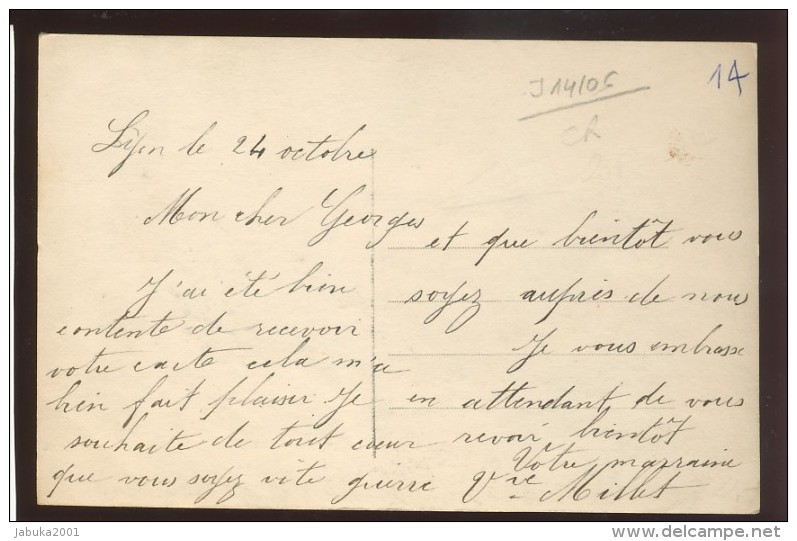 J 14/05
14
ch
Lyon le 24 octobre
Mon cher Georges
J'ai été bien
contente de recevoir
votre carte cela m'a
bien fait plaisir Je
souhaite de tout cœur
que vous soyez vite guerre
et que bientôt vous
soyez auprès de nous
Je vous embrasse
en attendant de vous
revoir bientôt
Votre marraine
Vve Millet
jabuka2001
www.delcampe.net